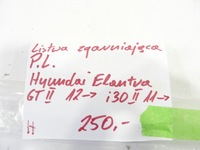 Listwa zgarniająca
P.L.
Hyundai Elantra
GT II 12→ i30 II 11→
H 250,-